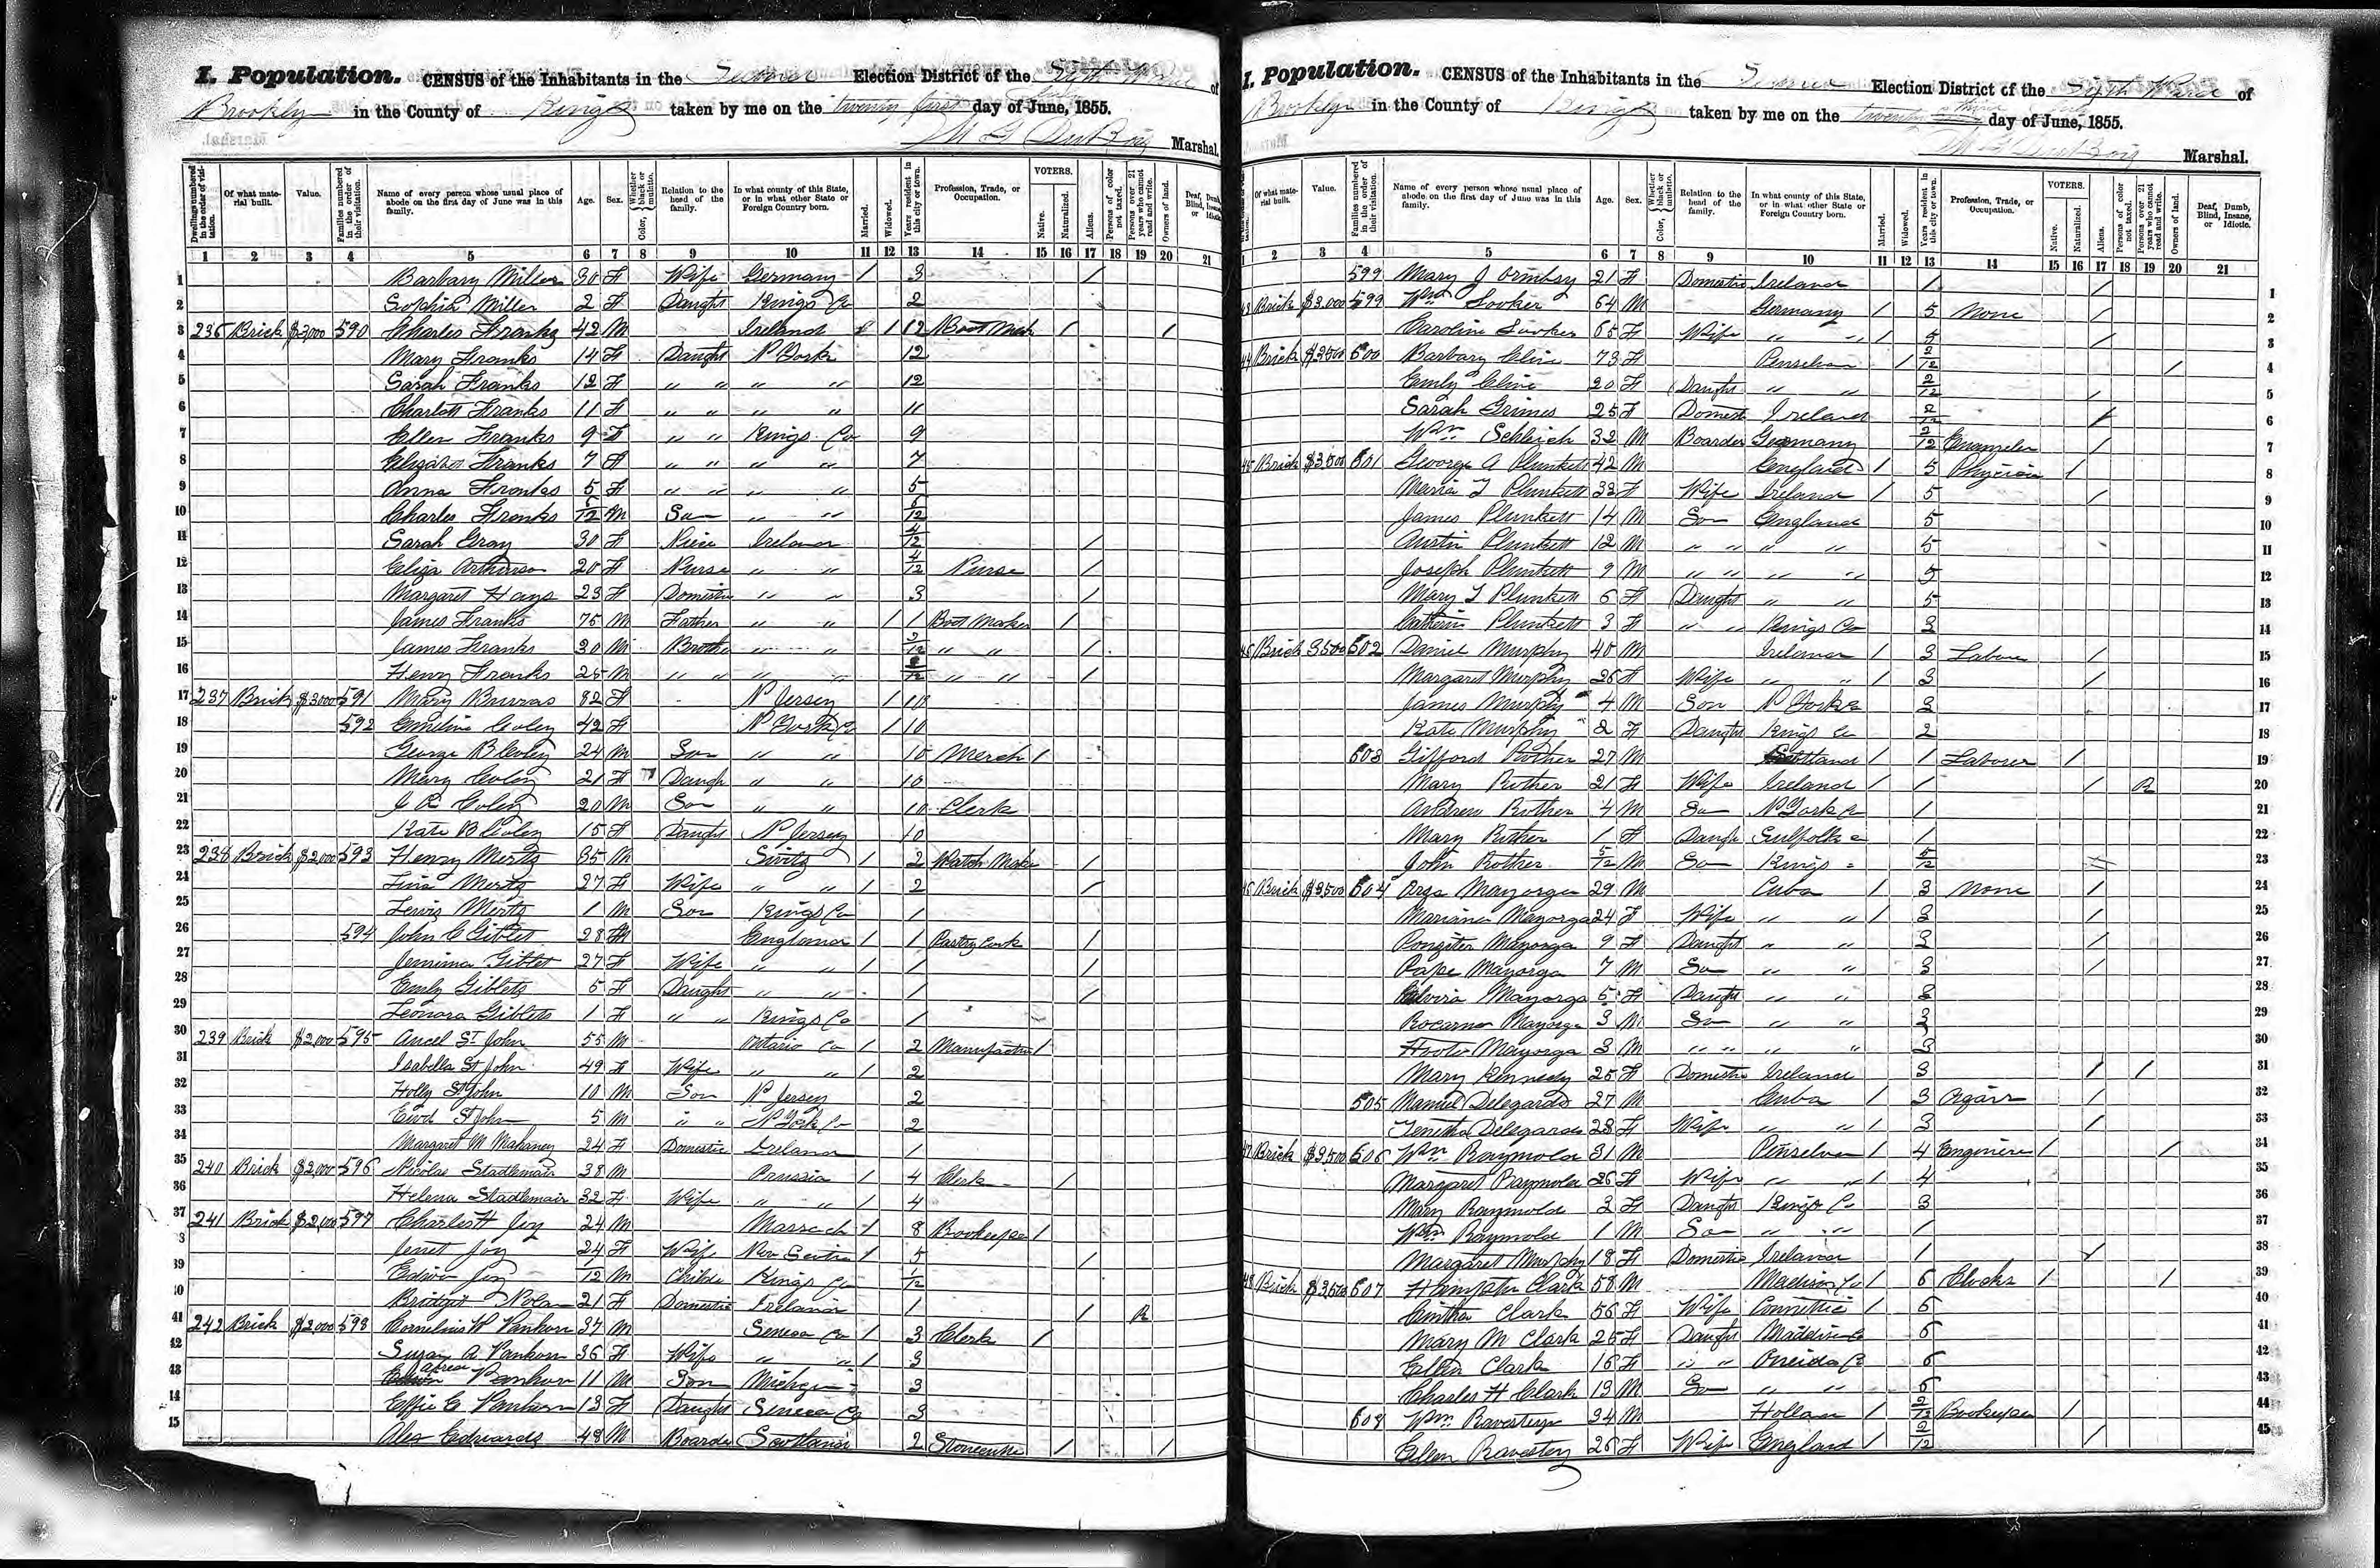 I. Population. CENSUS of the Inhabitants in the Election District of the Sixth Ward of
Brooklyn in the County of Kings taken by me on the twenty first day of June, 1855. July
Marshal.
Dwellings numbered in the order of visitation. Of what material built. Value. Families numbered in the order of their visitation. Name of every person whose usual place of abode on the first day of June was in this family. Age. Sex. Color, Whether black or mulatto. Relation to the head of the family. In what county of this State, or in what other State or Foreign Country born. Married. Widowed. Years resident in this city or town. Profession, Trade, or Occupation. VOTERS. Native. Naturalized. Aliens. Persons of color not taxed. Persons over 21 years who cannot read and write. Owners of land. Deaf, Dumb, Blind, Insane, or Idiotic.
1 2 3 4 5 6 7 8 9 10 11 12 13 14 15 16 17 18 19 20 21
1 Barbary Miller 30 F Wife Germany / 3 /
2 Sophia Miller 2 F Daught Kings Co 2
3 236 Brick $3,000 590 Charles Franks 42 M Ireland / 12 Boot Mak / /
4 Mary Franks 14 F Daught N York 12
5 Sarah Franks 12 F " " " " 12
6 Charlott Franks 11 F " " " " 11
7 Ellen Franks 9 F " " Kings Co 9
8 Elizabeth Franks 7 F " " " " 7
9 Anna Franks 5 F " " " " 5
10 Charles Franks 6/12 M Son " " 6/12
11 Sarah Gray 30 F Niece Ireland 4/12 /
12 Eliza 20 F Nurse " " 4/12 Nurse /
13 Margaret Hays 23 F Domestic " " 3 /
14 James Franks 75 M Father " " / 1 Boot Maker /
15 James Franks 30 M Brothe " " 2/12 " " /
16 Henry Franks 25 M " " " " /12 " " /
17 237 Brick $3000 591 Mary 82 F N Jersey / 10
18 592 Emeline Coley 42 F N York Co / 10
19 George B Coley 24 M Son " " 10 Merch /
20 Mary Coley 21 F Daugh " " 10
21 Coley 20 M Son " " 10 Clerk
22 Kate B Coley 15 F Daught N Jersey 10
23 238 Brick $2,000 593 Henry Mertz 35 M Switz / 2 Watch Make /
24 Lina Mertz 27 F Wife " " / 2 /
25 Lewis Mertz 1 M Son Kings Co 1
26 594 John C Giblet 28 M England / 1 Pastry Cook /
27 Jemima Giblet 27 F Wife " " / 1 /
28 Emily Giblets 5 F Daught " " 1 /
29 Leonora Giblets 1 F " " Kings Co 1
30 239 Brick $2,000 595 Ancel St John 55 M Ontario Co / 2 Manufactur /
31 Isabella St John 49 F Wife " " / 2
32 Holly St John 10 M Son N Jersey 2
33 St John 5 M " " N York Co 2
34 Margaret M Mahaney 24 F Domestic Ireland 1
35 240 Brick $2,000 596 Nicolas Stadlemair 38 M Prussia / 4 Clerk /
36 Helena Stadlemair 32 F Wife " " / 4
37 241 Brick $2,000 597 Charles H Joy 24 M Massach / 8 Bookeeper /
3 Jenet Joy 24 F Wife Nov Scotia / 5 /
39 Edwin Joy 1/12 M Childe Kings Co 1/12
40 Bridget Nolan 21 F Domestic Ireland 1 / R
41 242 Brick $2,000 598 Cornelius W Vanhorn 37 M Seneca Co / 3 Clerk /
42 Susan A Vanhorn 36 F Wife " " / 3
43 Vanhorn 11 M Son Michigan 3
44 Effie C Vanhorn 13 F Daught Seneca Co 3
45 Alex Edwards 48 M Boarde Scotland 2 Stonecutte / /
I. Population. CENSUS of the Inhabitants in the Election District of the Sixth Ward of
Brooklyn in the County of Kings taken by me on the twenty third day of June, 1855. July
Marshal.
Of what material built. Value. Families numbered in the order of their visitation. Name of every person whose usual place of abode on the first day of June was in this family. Age. Sex. Color, Whether black or mulatto. Relation to the head of the family. In what county of this State, or in what other State or Foreign Country born. Married. Widowed. Years resident in this city or town. Profession, Trade, or Occupation. VOTERS. Native. Naturalized. Aliens. Persons of color not taxed. Persons over 21 years who cannot read and write. Owners of land. Deaf, Dumb, Blind, Insane, or Idiotic.
2 3 4 5 6 7 8 9 10 11 12 13 14 15 16 17 18 19 20 21
599 Mary J Ormbsy 21 F Domestic Ireland 1 / 1
43 Brick $3.000 599 Wm Looker 64 M Germany / 5 None / 2
Caroline Looker 65 F Wife " " / 5 / 3
44 Brick $3500 600 Barbary Cline 73 F Penselvan / 2/12 / 4
Emly Cline 20 F Daught " " 2/12 5
Sarah Grimes 25 F Domest Ireland 2/12 / 6
Wm Schleich 32 M Boarder Germany 2/12 Enameler / 7
45 Brick $3,500 601 George A Plunkett 42 M England / 5 Physician / 8
Maria T Plunkett 33 F Wife Ireland / 5 / 9
James Plunkett 14 M Son England 5 10
Austin Plunkett 12 M " " " " 5 11
Joseph Plunkett 9 M " " " " 5 12
Mary T Plunkett 6 F Daught " " 5 13
Catherin Plunkett 3 F " " Kings Co 3 14
45 Brick 3500 602 Daniel Murphy 40 M Ireland / 3 Labour / 15
Margaret Murphy 26 F Wife " " / 3 / 16
James Murphy 4 M Son N York Co 3 17
Kate Murphy 2 F Daught Kings Co 2 18
603 Gifford Rother 27 M / 1 Laborer / 19
Mary Rother 21 F Wife Ireland / 1 / R 20
Andrew Rother 4 M Son N York Co 1 21
Mary Rother 1 F Daugh Sulfolk 1 22
John Rother 5/12 M Son Kings 5/12 23
46 Brick $3,500 604 Mayorga 29 M Cuba / 3 None / 24
Mariana Mayorga 24 F Wife " " / 3 / 25
Mayorga 9 F Daught " " 3 / 26
Pape Mayorga 7 M Son " " 3 / 27
Mayorga 5 F Daught " " 3 28
Mayorga 3 M Son " " 3 29
Mayorga 3 M " " " " 3 30
Mary Kennedy 25 F Domestic Ireland 3 / / 31
505 Manuel Delegardo 27 M Cuba / 3 32
Delegardo 28 F Wife " " / 3 / 33
47 Brick $3,500 606 Wm Raymold 31 M Penselvan / 4 Enginiere / / 34
Margaret Raymold 26 F Wife " " / 4 35
Mary Raymold 3 F Daught Kings Co 3 36
Wm Raymold 1 M Son " " 1 37
Margaret Murphy 18 F Domestic Ireland 1 / 38
48 Brick $3,500 607 Clark 58 M Madison Co / 6 Clocks / / 39
Cinthia Clark 56 F Wife / 6 40
Mary M Clark 25 F Daught Madison Co 6 41
Ellen Clark 16 F " " Oneida Co 6 42
Charles H Clark 13 M Son " " 6 43
608 Wm 34 M Hollan / 2/12 Bookeeper / 44
Ellen 26 F Wife England / 2/12 / 45